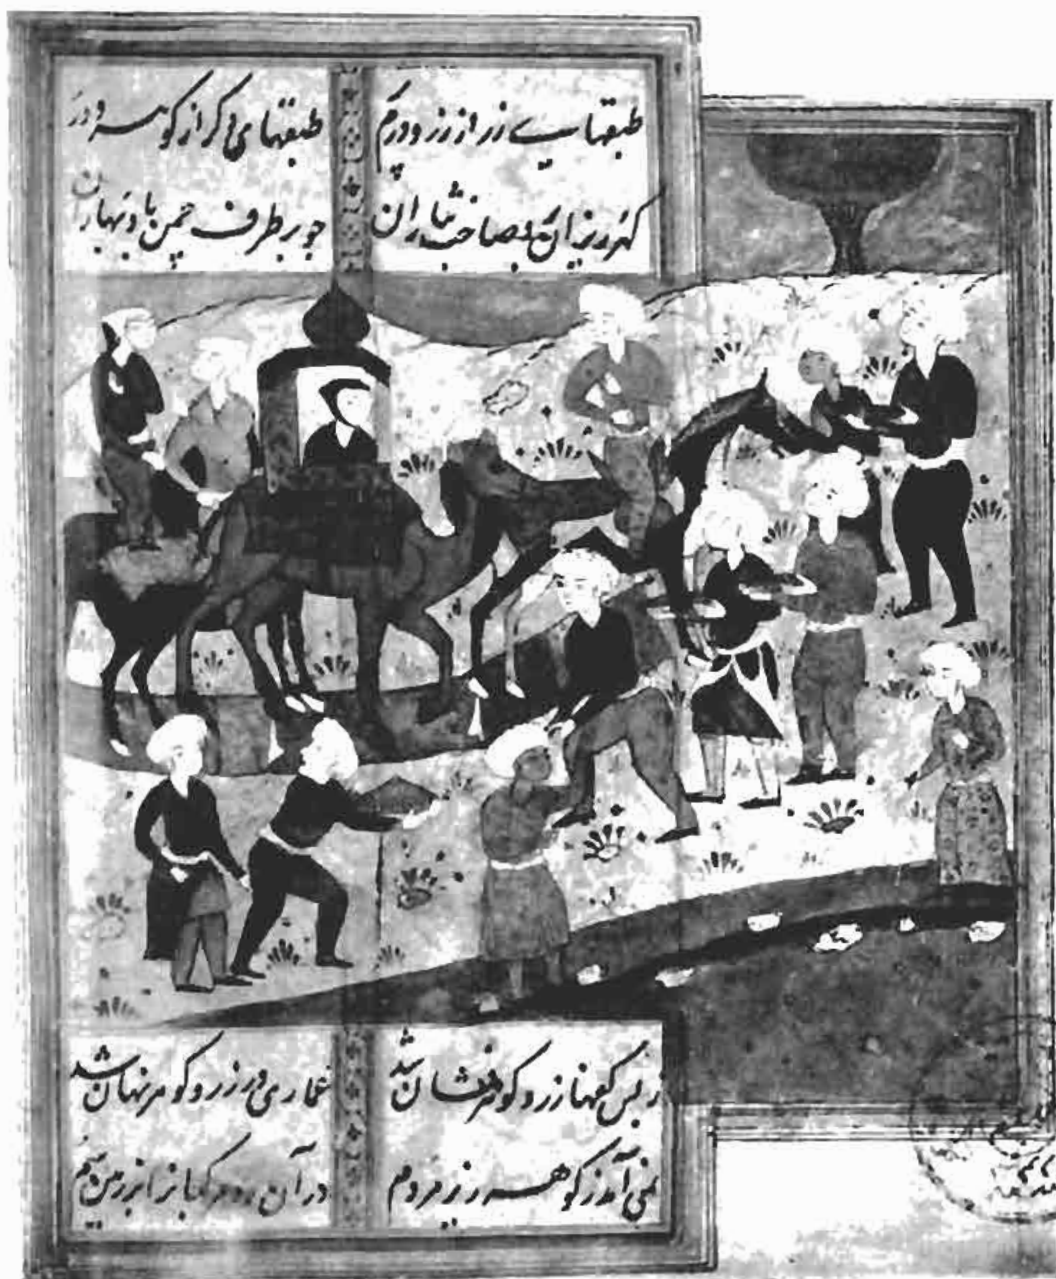 طبقهایی زر از زر و درم پر طبقهای دکر از کوهر و در
کهرریزان صاحب نثاران چو بر طرف چمن باد بهاران
ز بس کفها زر و کوهر فشان شد عماری در زر و کوهر نهان شد
نمی آمد ز کوهر ریز مردم در آن ره مرکبانرا بر زمین سم